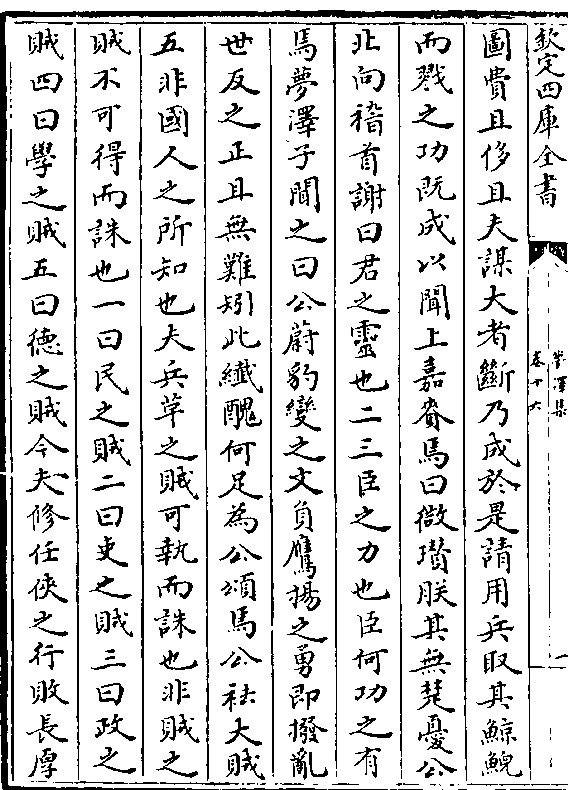 欽定四庫全書
夢澤集
卷十六
圖費且侈且夫謀大者斷乃成於是請用兵取其鯨鯢
而戮之功既成以聞上嘉賚焉曰微瓚朕其無楚憂公
北向稽首謝曰君之靈也二三臣之力也臣何功之有
焉夢澤子聞之曰公蔚豹變之文負鷹揚之勇即撥亂
世反之正且無難矧此纖醜何足為公頌焉公祛大賊
五非國人之所知也夫兵草之賊可執而誅也非賊之
賊不可得而誅也一曰民之賊二曰吏之賊三曰政之
賊四曰學之賊五曰德之賊今夫修任俠之行敗長厚